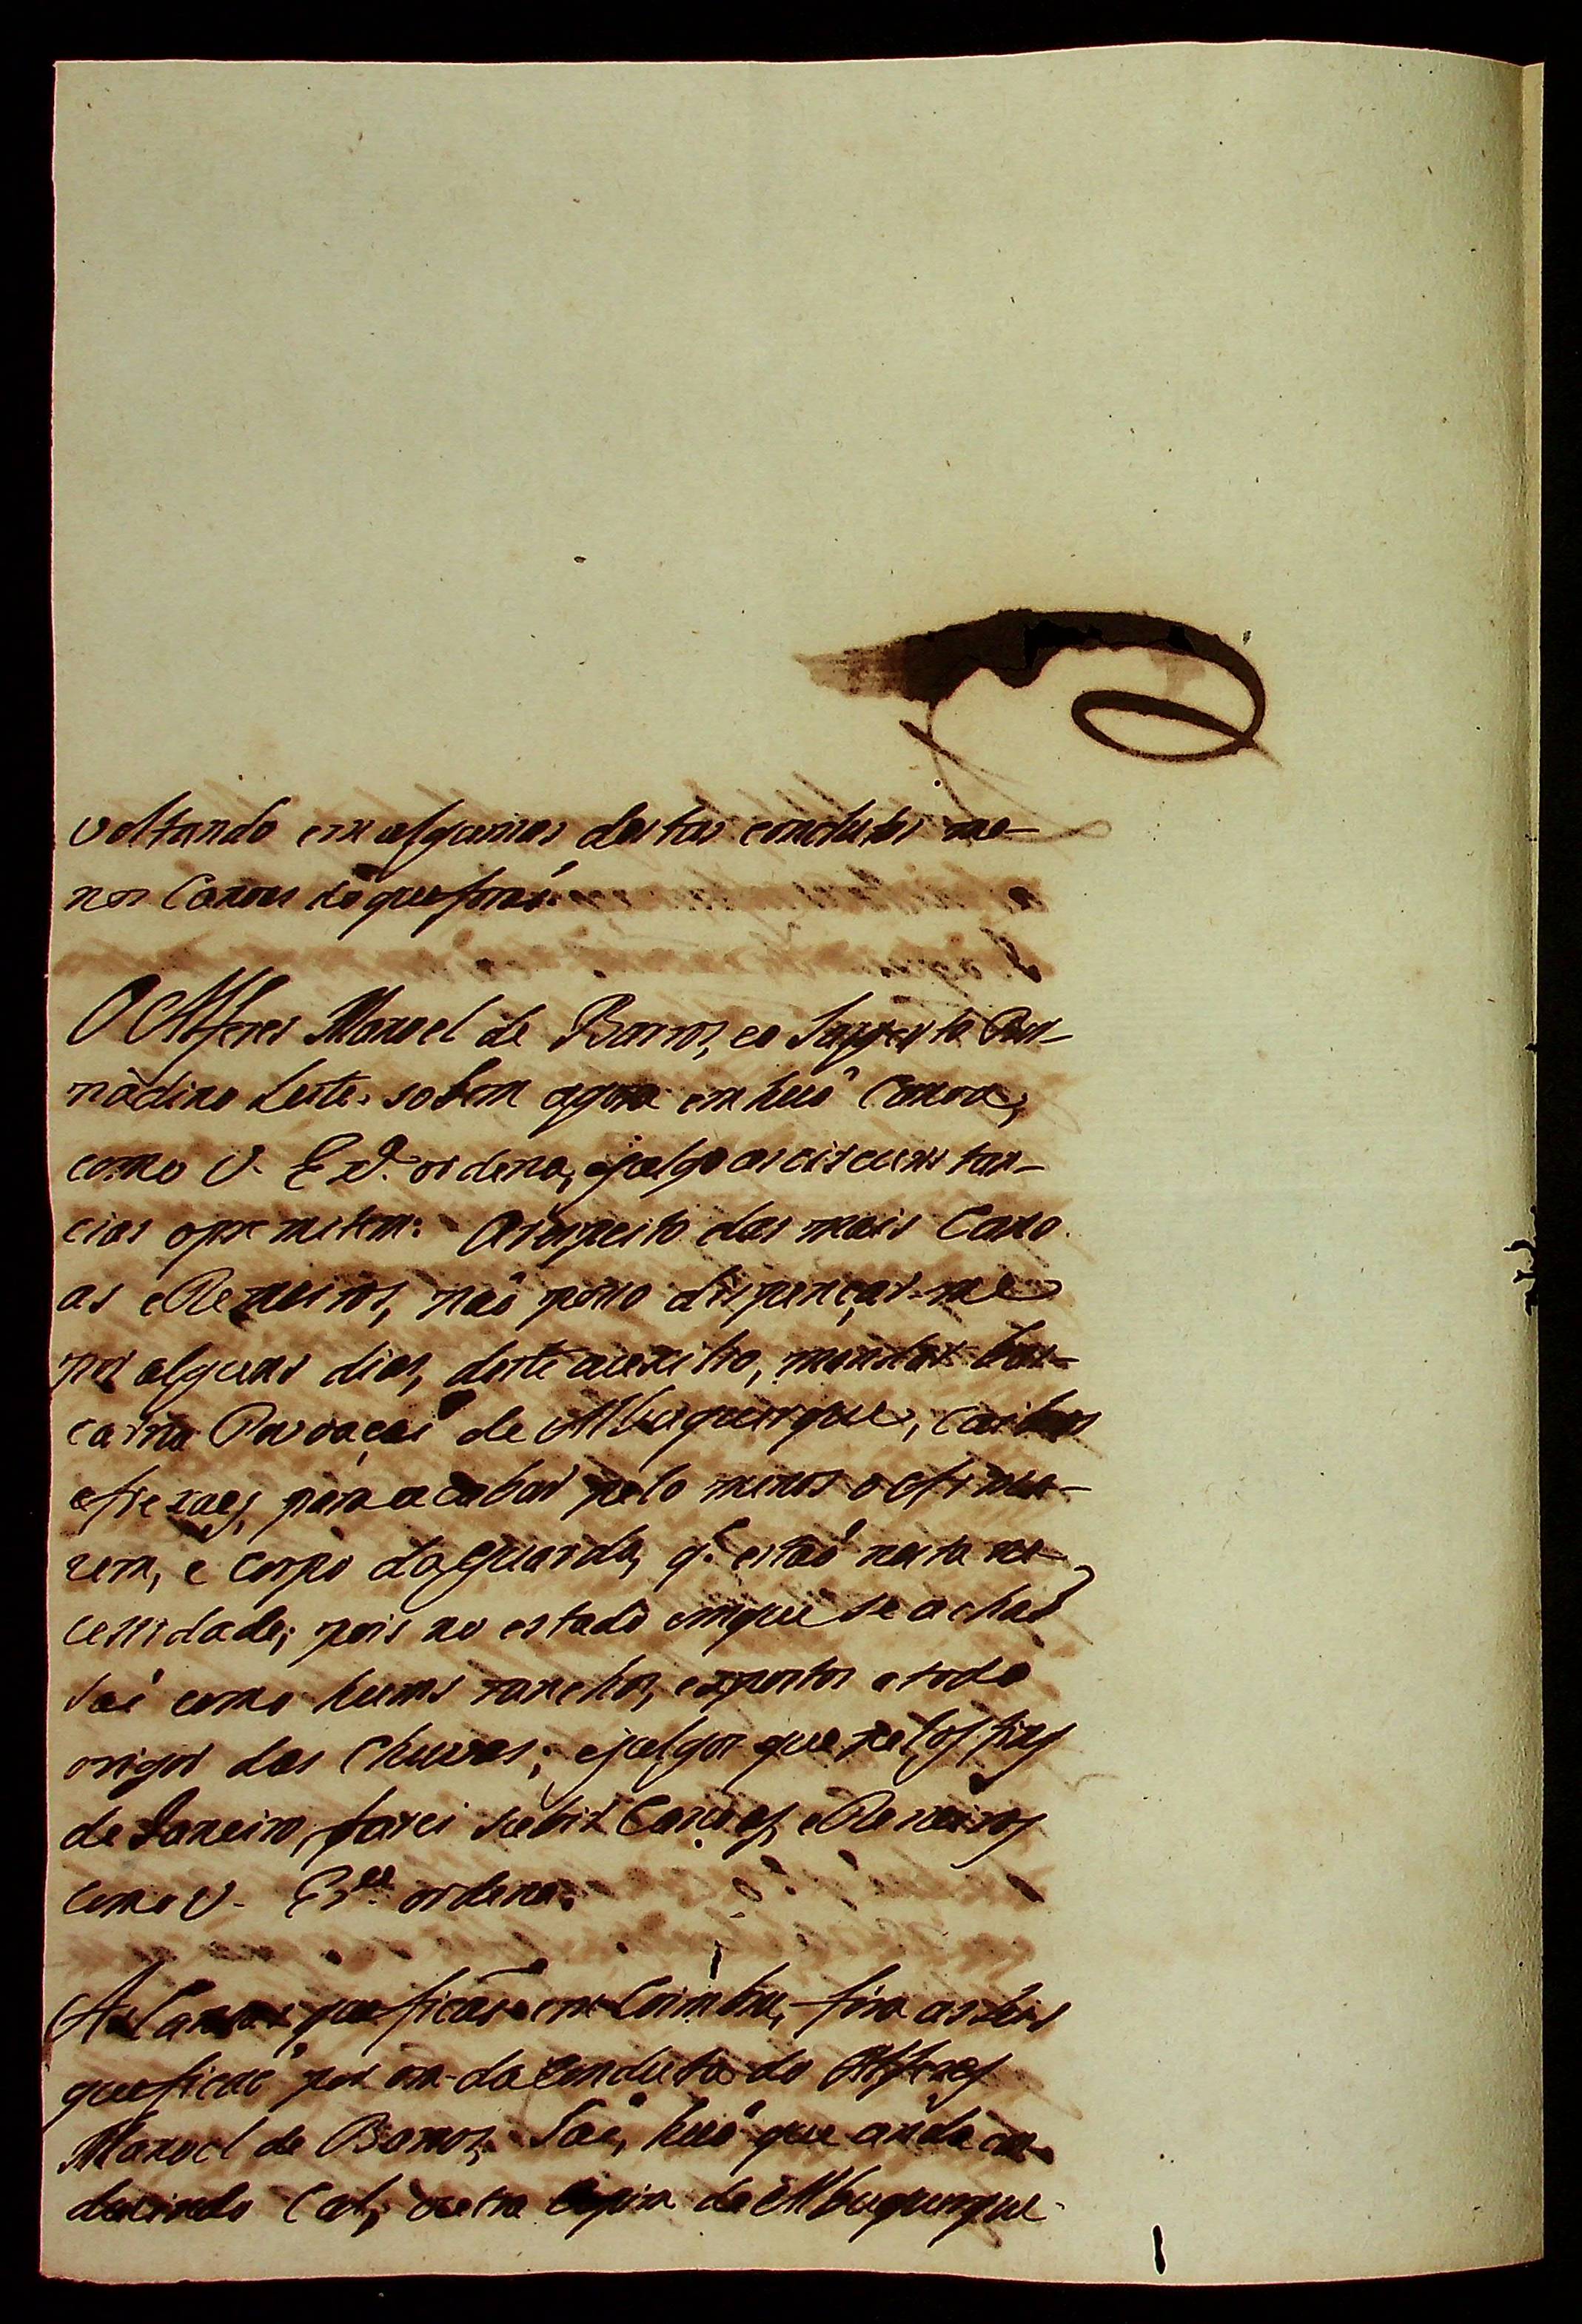 voltando em algumas destas condutas me-
nos Canoas do que foraõ.
O Alferes Manoel de Barros, eo Sargento Ber-
nàdino Leite. sobem agora em huã Canoa,
como V. Exª. ordena, ejulgo as circuns tan-
cias opremitem: Arespeito das mais Cano
as eRemeiros, naõ posso dispençar-me
por alguns dias, deste auxilio, mandar bus-
carna Povoaçaõ de Albuquerque, caibros
para acabar pelo menos o Arma-
zem, e Corpo daguarda, q.' estaõ nesta ne-
cessidade; pois no estado emque se achaõ
saõ como huns ranchos, expostos atodo
origor das Chuvas; ejulgo que pelos fins
de Janeiro, farei subir Canoas, eRemeiros
como V. Exª. ordena.
As Canoas, que ficaõ em Coimbra, fora as seis
que ficaõ por ora da Conduta do Alferes
Manoel de Barros, Saõ, huã que anda con
duzindo Cal, outra de Albuquerque